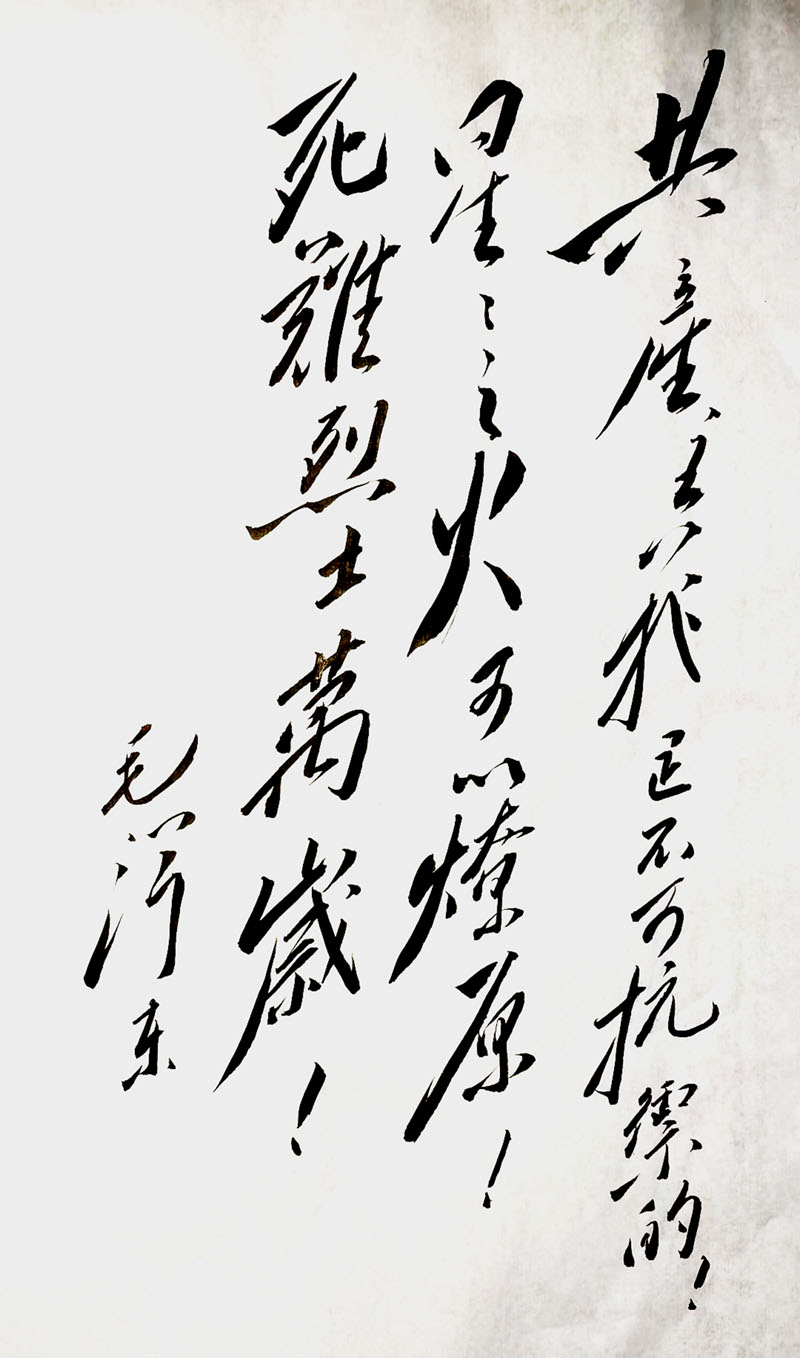 共產主義是不可抗禦的！
星星之火可以燎原！
死難烈士萬歲！
毛泽东